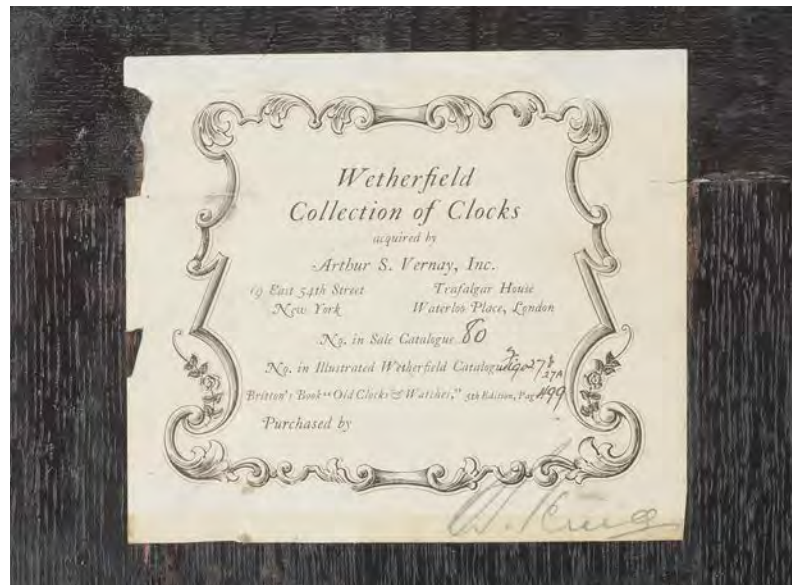 Wetherfield
Collection of Clocks
acquired by
Arthur S. Vernay, Inc.
19 East 54th Street Trafalgar House
New York Waterloo Place, London
No. in Sale Catalogue 80
No. in Illustrated Wetherfield Catalogue Figs 27 & 27A
Britten's Book "Old Clocks & Watches," 5th Edition, Page 499
Purchased by